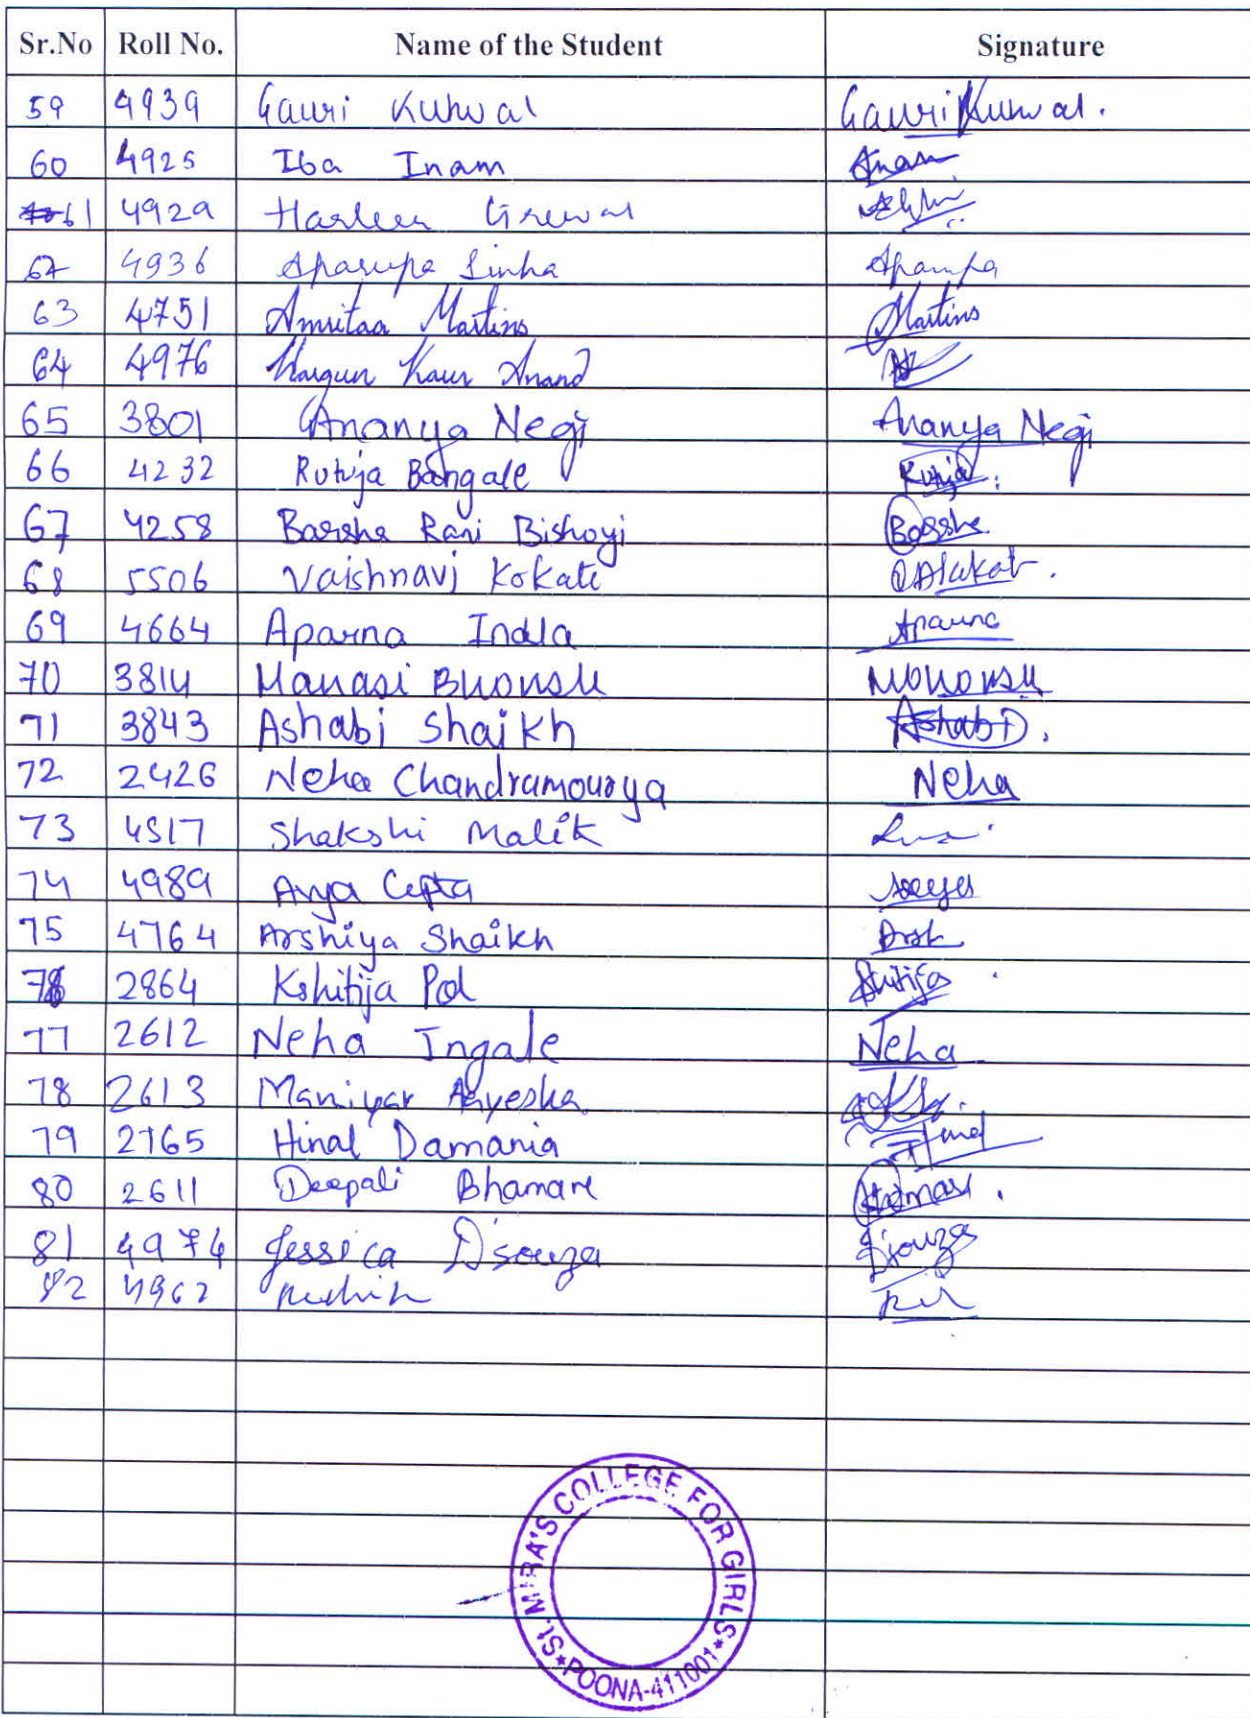 Sr.No Roll No. Name of the Student Signature
59 4939 Gauri Kunwal Gauri Kunwal.
60 4925 Iba Inam Inam
61 4929 Harleen Grewal
62 4936 Aparupa Sinha Aparupa
63 4751 Amritaa Martins Martins
64 4976 Kaur Anand
65 3801 Ananya Negi Ananya Negi
66 4232 Rutuja Bangale Rutuja
67 4258 Barsha Rani Bishoyi Barsha
68 5506 Vaishnavi Kokate
69 4664 Aparna Indla Aparna
70 3814 Manasi Bhonsle
71 3843 Ashabi Shaikh Ashabi.
72 2426 Neha Chandramourya Neha
73 4517 Shakshi Malik
74 4989 Arya
75 4764 Arshiya Shaikh Arsh
76 2864 Kshitija Pol Kshitija
77 2612 Neha Ingale Neha
78 2613 Maniyar Aayesha
79 2765 Hinal Damania Hinal
80 2611 Deepali Bhamare
81 4974 Jessica D'souza D'souza
82 4962
ST. MIRA'S COLLEGE FOR GIRLS
*POONA-411001*